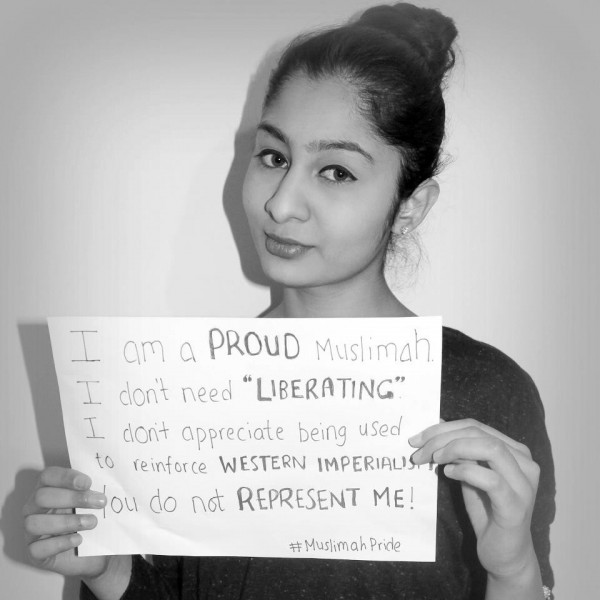 I am a PROUD Muslimah.
I don't need "LIBERATING".
I don't appreciate being used
to reinforce WESTERN IMPERIALISM.
You do not REPRESENT ME!
#MuslimahPride